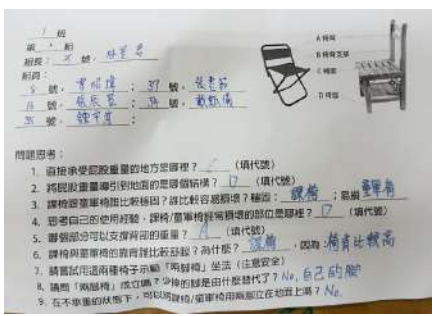 班
第 組
組長： 號，
A 椅背
組員：
B 椅背支架
8 號， ； 37 號，
C 椅面
號， ； 號，
D 椅腳
號， ；
問題思考：
1. 直接承受屁股重量的地方是哪裡？ C （填代號）
2. 將屁股重量導引到地面的是哪個結構？ D （填代號）
3. 課椅跟童軍椅誰比較穩固？誰比較容易損壞？穩固： 課椅 ；易損 童軍椅
4. 思考自己的使用經驗，課椅/童軍椅經常損壞的部位是哪裡？ D （填代號）
5. 哪個部分可以支撐背部的重量？ A （填代號）
6. 課椅與童軍椅的靠背誰比較舒服？為什麼？ 課椅 ，因為：椅背比較高
7. 請嘗試用這兩種椅子示範「兩腳椅」坐法（注意安全）
8. 請問「兩腳椅」成立嗎？少掉的腳是由什麼替代了？No, 自己的腳
9. 在不承重的狀態下，可以將課椅/童軍椅用兩腳立在地面上嗎？No.